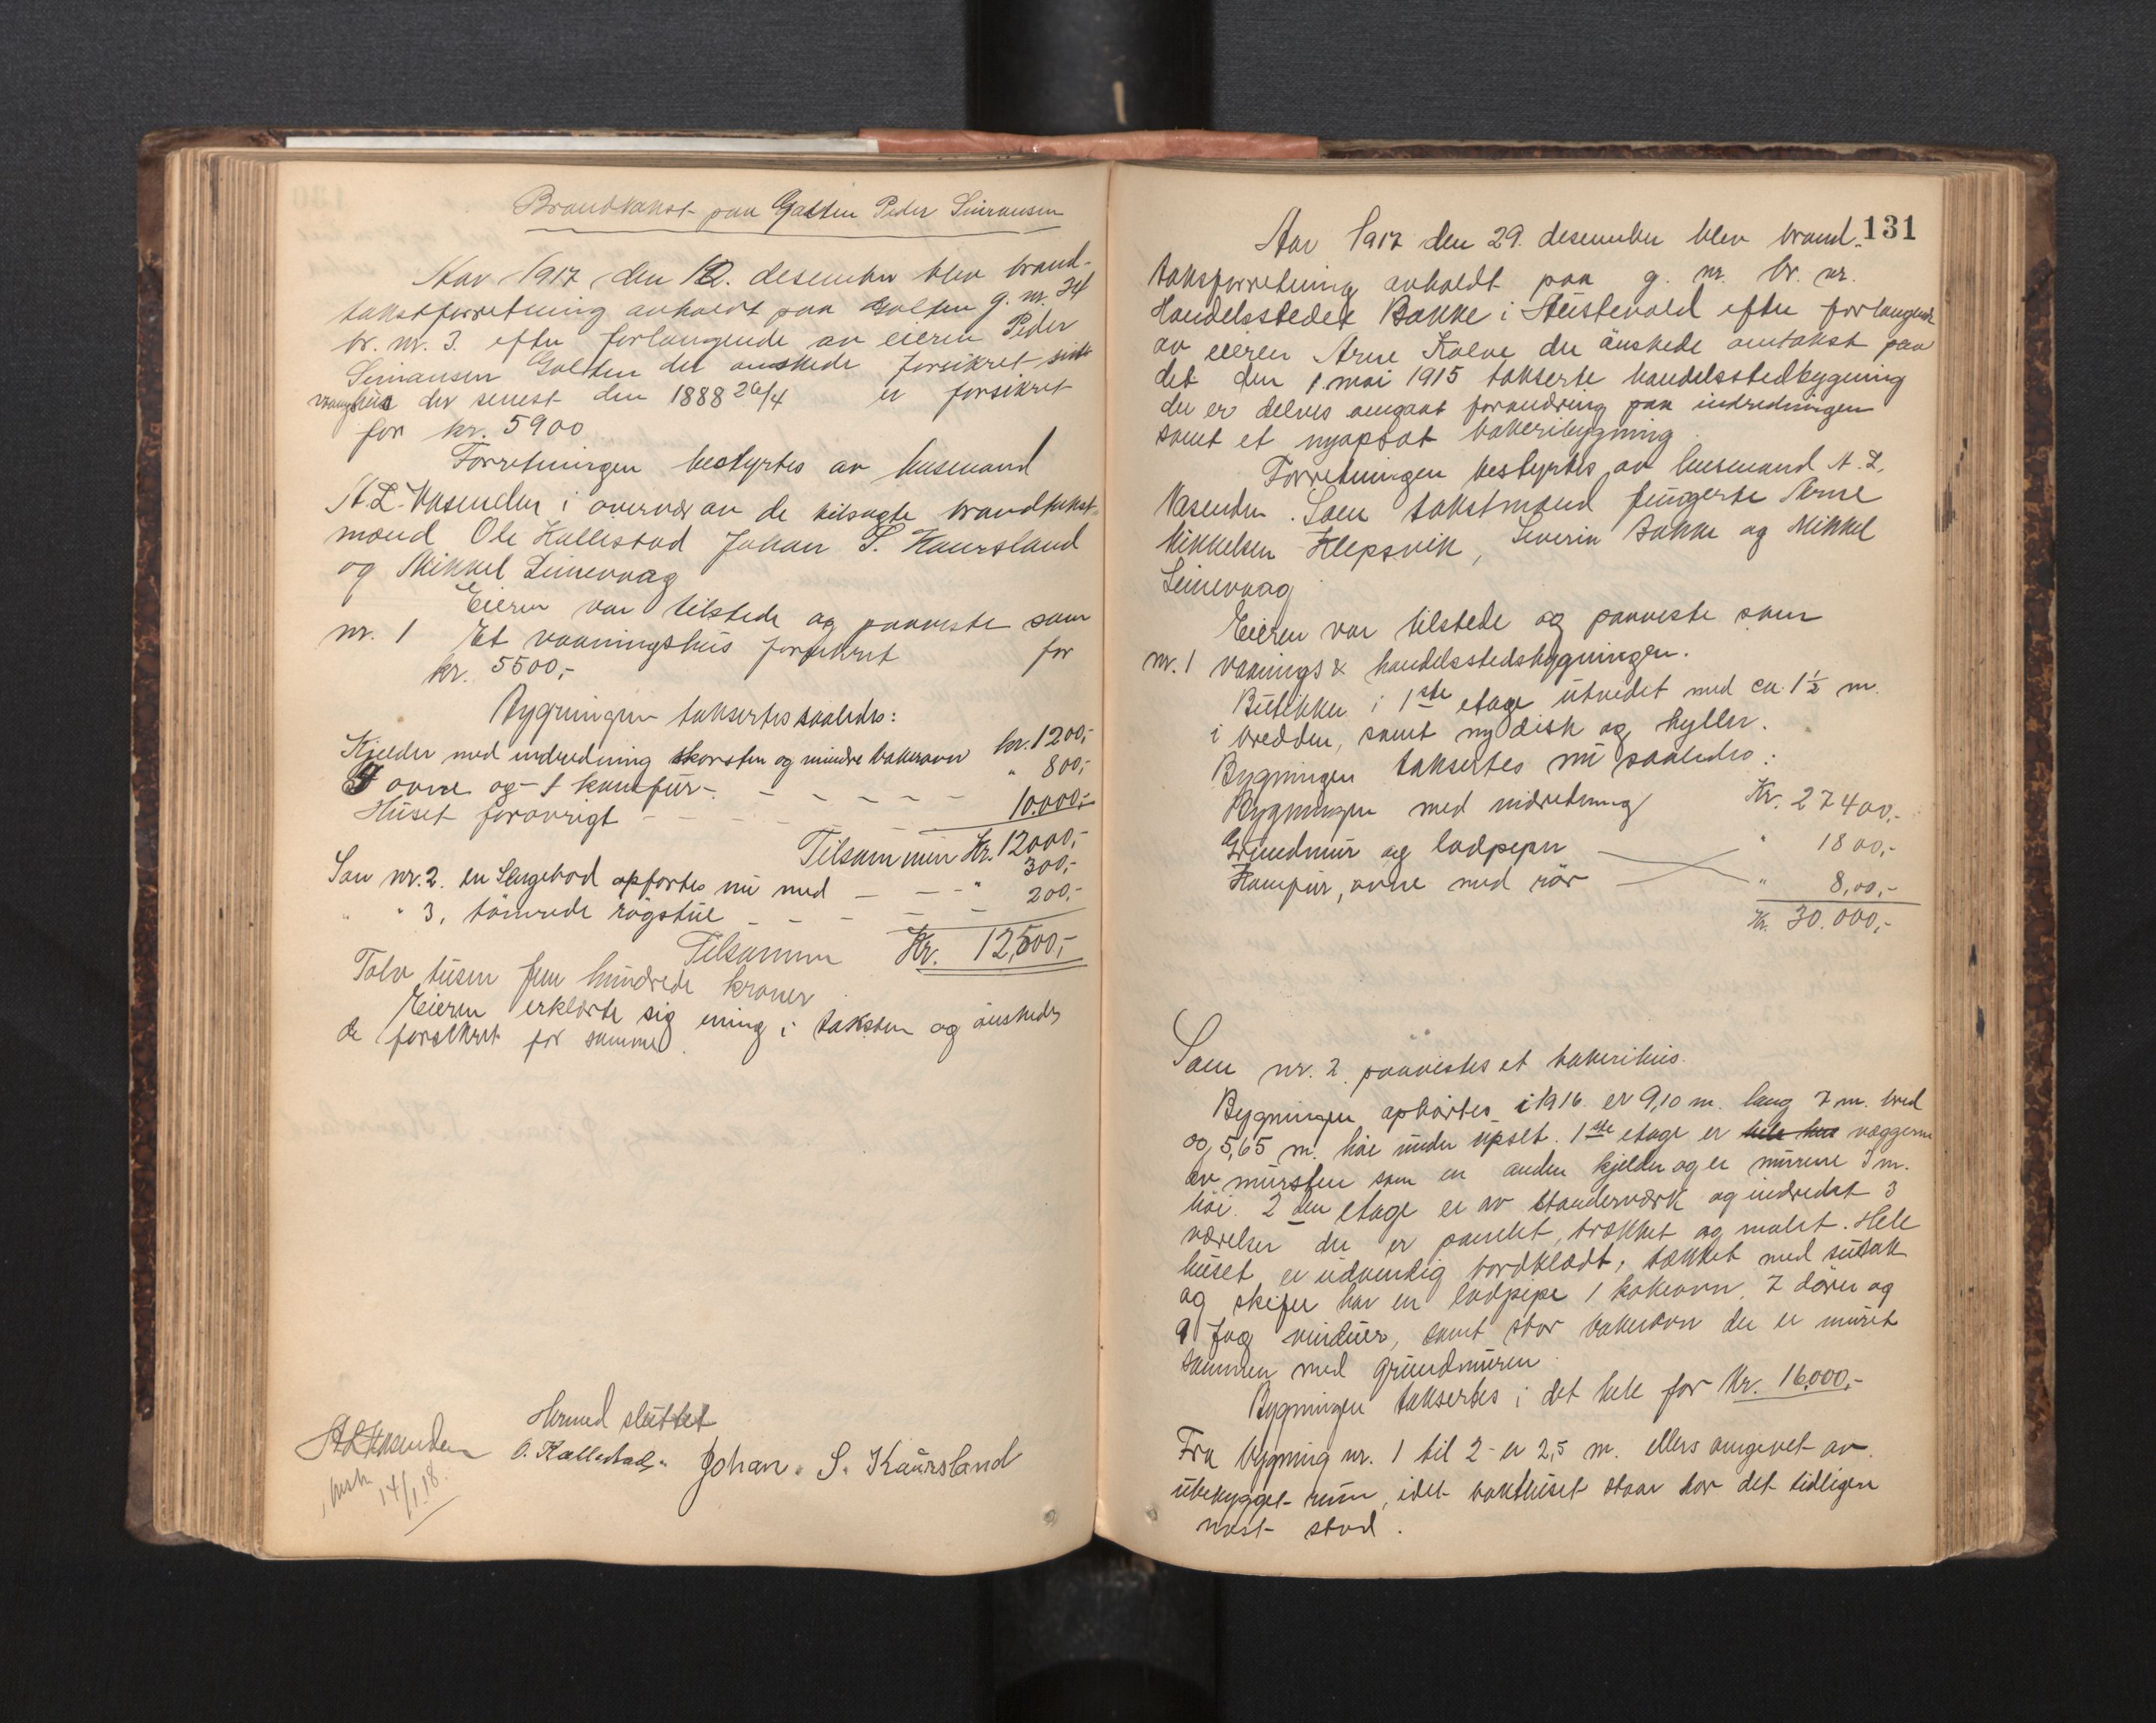 Brandtakst paa Galten Peder Simonsen
Aar 1917 den 12. desember blev brand-
takstforretning avholdt paa Galten g. nr. 34
br. nr. 3. efter forlangende av eieren Peder
Simonsen Galten der ønskede forsikret sit
vaaningshus der senest den 1888 26/4 er forsikret
for kr. 5900
Forretningen bestyrtes av lensmand
A. L. Vasenden i overvær av de tilsagte brandtakst-
mænd Ole Kallestad Johan S. Kaursland
og Mikkel Steinevaag
Eieren var tilstede og paaviste som
nr. 1 Et vaaningshus forsikret for
kr. 5500,-
Bygningen taksertes saaledes:
Kjelder med indredning skorsten og mindre bakerovn kr. 1200,-
4 ovne og 1 komfur - " 800,-
Huset forøvrigt 10.000,-
Tilsammen Kr. 12000,-
Som nr. 2. en Sengebod opførtes nu med " 300,-
" " 3, tømrede røgstue 200,-
Tilsammen Kr. 12,500,-
Tolv tusen fem hundrede kroner
Eieren erklærte sig enig i taksten og ønskedes
de forsikret for samme.
Hermed sluttet
A L Vasenden O. Kallestad. Johan. S. Kaursland
14/1.18.
131
Aar 1917 den 29. desember blev brand-
taksforretning avholdt paa g. nr. br. nr.
Handelsstedet Bakke i Austevold efter forlangende
av eieren Arne Kalve der ønskede omtakst paa
det den 1. mai 1915 takserte handelsstedbygning
der er delvis omgaat forandring paa indredningen
samt et nyopsat bakeribygning
Forretningen bestyrtes av lensmand A. L.
Vasenden. Som takstmænd fungerte Arne
Mikkelsen Klepsvik, Severin Bakke og Mikkel
Steinevaag
Eieren var tilstede og paaviste som
nr. 1 Vaanings & handelsstedsbygningen.
Butikker i 1ste etage utvidet med ca. 1½ m.
i bredden, samt ny disk og hyller.
Bygningen taksertes nu saaledes:
Bygningen med indredning Kr. 27400,-
Grundmur og ladpiper " 1800,-
Komfur, ovne med rør " 8,00,-
Kr. 30.000,-
Som nr. 2. paavistes et bakerihus.
Bygningen opførtes i 1916 er 9,10 m. lang 7 m. bred
og 5,65 m. høi under upset. 1ste etage er hele hus væggerne
av mursten som en anden kjelder og er murene 3 m.
høi. 2den etage er av standerværk og indredet 3
værelser der er panelet, trækket og malet. Hele
huset er udvendig bordklædt, tækket med sutak
og skifer har en ladpipe 1 kokeovn. 7 dører og
9 fag vinduer, samt stor bakerovn der er muret
sammen med grundmuren.
Bygningen taksertes i det hele for Kr. 16,000,-
Fra bygning nr. 1 til 2 er 2,5 m. ellers omgivet av
ubebygget rum, idet bakthuset staar hor det tidligere
nøst stod.